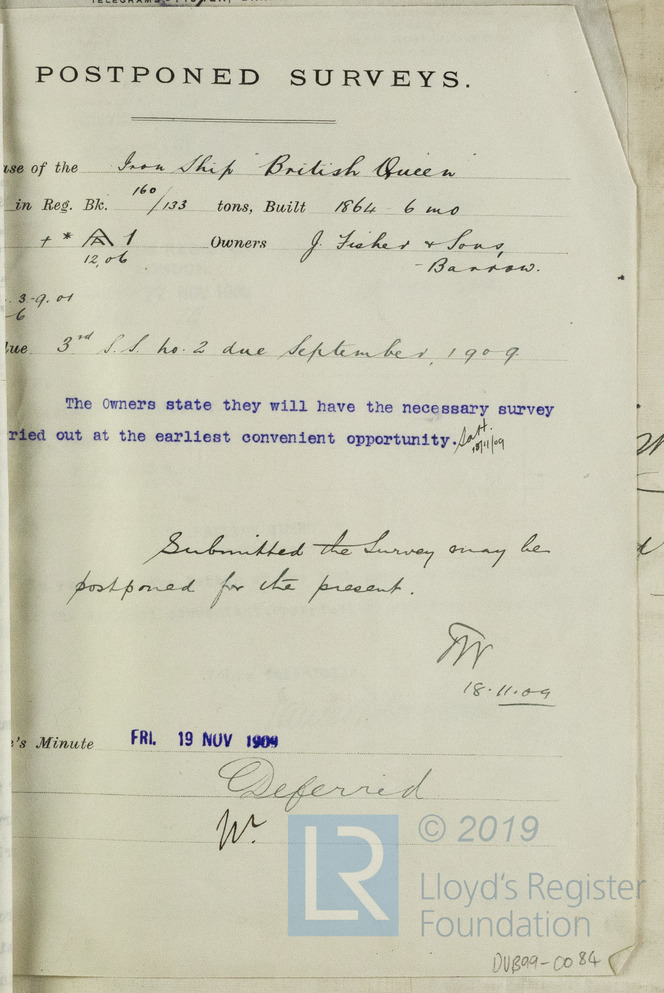 POSTPONED SURVEYS.
use of the Iron Ship "British Queen"
in Reg. Bk. 160/133 tons, Built 1864 - 6 mo
+ * A 1 Owners J. Fisher & Sons,
12,06 - Barrow.
. 3-9. 01
-6
due 3rd S.S. No. 2 due September, 1909
The Owners state they will have the necessary survey
rried out at the earliest convenient opportunity.
18/11/09
Submitted the Survey may be
postponed for the present.
18.11.09
e's Minute FRI. 19 NOV 1909
Deferred
W.
LR
© 2019
Lloyd's Register
Foundation
DUB99-0084